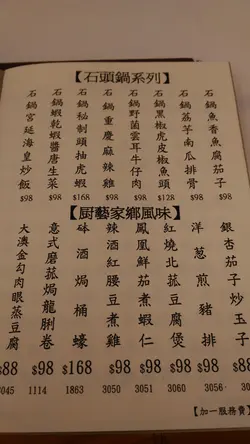 【石頭鍋系列】
石鍋魚香魚腐茄子 $98
石鍋荔芋南瓜排骨 $98
石鍋黑椒虎皮魚頭 $128
石鍋野菌雲耳牛仔肉 $98
石鍋重慶麻辣雞 $98
石鍋秘制頭抽虎蝦 $168
石鍋蝦乾蝦醬唐生菜 $98
石鍋宮延海皇炒飯 $98
【厨藝家鄉風味】
銀杏玉子 $88
洋葱煎豬扒 $98 3056
紅燒北菰豆腐煲 $98 3060
鳳凰鮮茄煮蝦仁 $98 3051
辣酒紅腰豆煮雞 $98 3050
砵酒焗桶蠔 $168 1863
意式磨菰焗龍脷卷 $98 1114
大澳金勾肉眼蒸豆腐 $88 3045
【加一服務費】